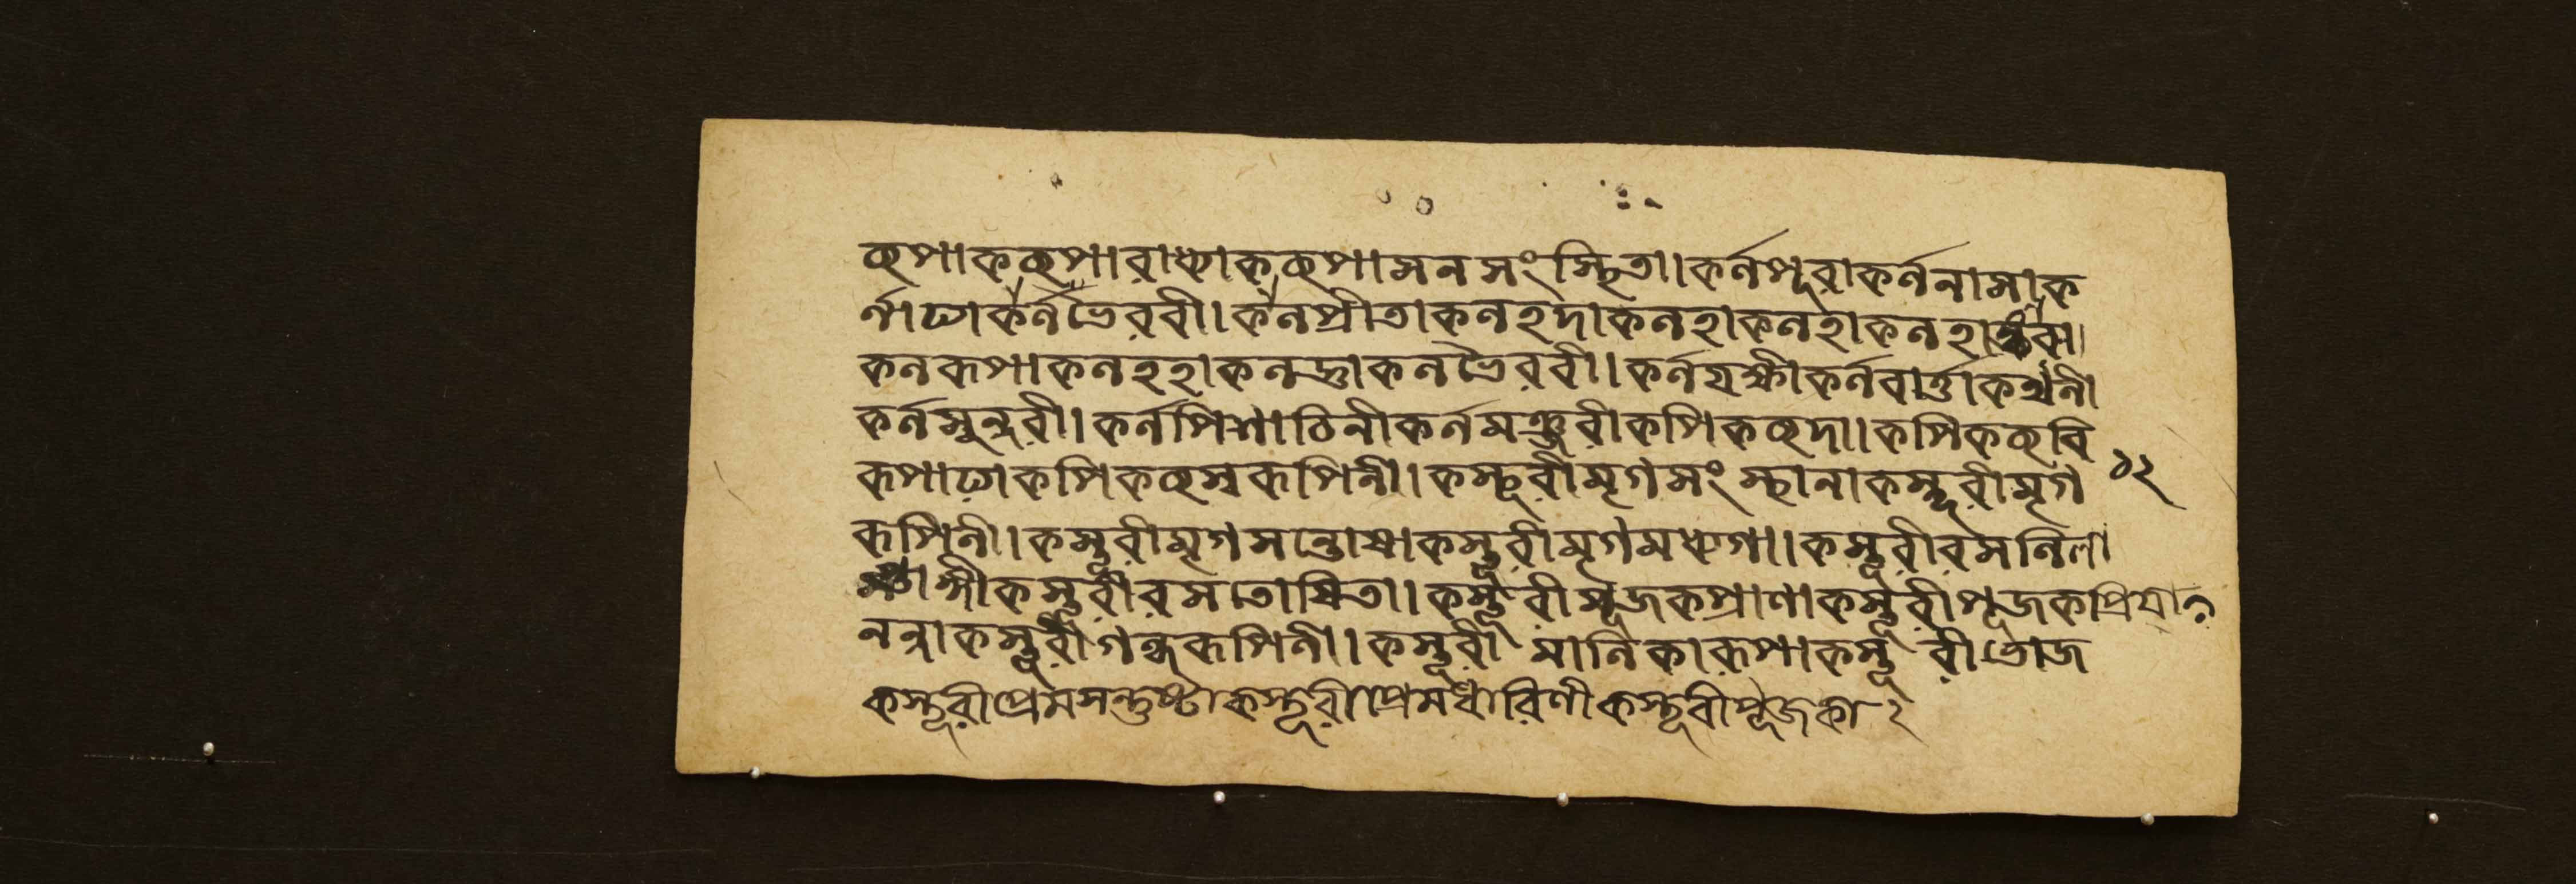 রূপাকরূপারাধ্যাকরূপাসনসংস্থিতা।কর্নপূরাকর্ননামাক
র্নাঢ্যাকর্নভৈরবী।কর্নপ্রীতাকনহদাকনহাকনহাকনহা
কনকপাকনহহাকনভৈরবী।কর্নযক্ষীকর্নবার্ত্তাকথনী
কর্নসুন্দরী।কর্নপিশাচিনীকর্নমঞ্জরীকপিকরূদা।কপিকরূবি
রূপাঢ্যাকপিকরূস্বরূপিনী।কস্তূরীমৃগসংস্থানাকস্তূরীমৃগ
১২
রূপিনী।কস্তূরীমৃগসন্তোষাকস্তূরীমৃগমধ্যগা।কস্তূরীরসনিলা
ঙ্গীকস্তূরীরসতোষিতা।কস্তূরীপূজকপ্রাণাকস্তূরীপূজকপ্রিযা
কস্তূরীগন্ধরূপিনী।কস্তূরীমানিকারূপাকস্তূরীভোজ
কস্তূরীপ্রেমসন্তুষ্টাকস্তূরীপ্রেমধারিণীকস্তূরীপূজকা২